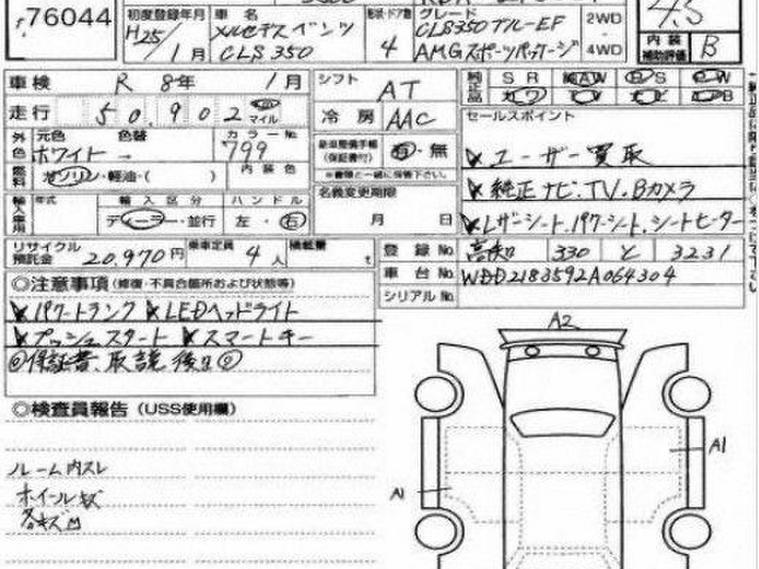 76044
初度登録年月 車名 形状・ドア数 グレード
H25/1月 メルセデスベンツ 4 CLS350ブルーEF 2WD 4.5
CLS350 AMGスポーツパッケージ 4WD 内装補助評価 B
車検 R 8年 1月 シフト AT 純正品 SR AW PS PW
走行 50,902 マイル 冷房 AAC カワ TV ナビ エアB
外色 元色 色替 カラーNo. セールスポイント
ホワイト → 799 新車整備手帳(保証書付) 有・無 ユーザー買取
燃料 ガソリン・軽油・( ) 内装色 ※書類と一緒に保管下さい。
輸入車用 年式 輸入区分 ハンドル 名義変更期限 純正ナビ.TV.Bカメラ
ディーラー・並行 左・右 月 日 レザーシート.パワーシート.シートヒーター
リサイクル預託金 20,970円 乗車定員 4人 積載量 t 登録No. 高知 330 と 3231
◎注意事項(修復・不具合箇所および状態等) 車台No. WDD2183592A064304
パワートランク LEDヘッドライト シリアルNo.
プッシュスタート スマートキー
◎保証書、取説後日◎
◎検査員報告(USS使用欄)
A2
ルーム内スレ
ホイールキズ
各キズ凹
A1
A1